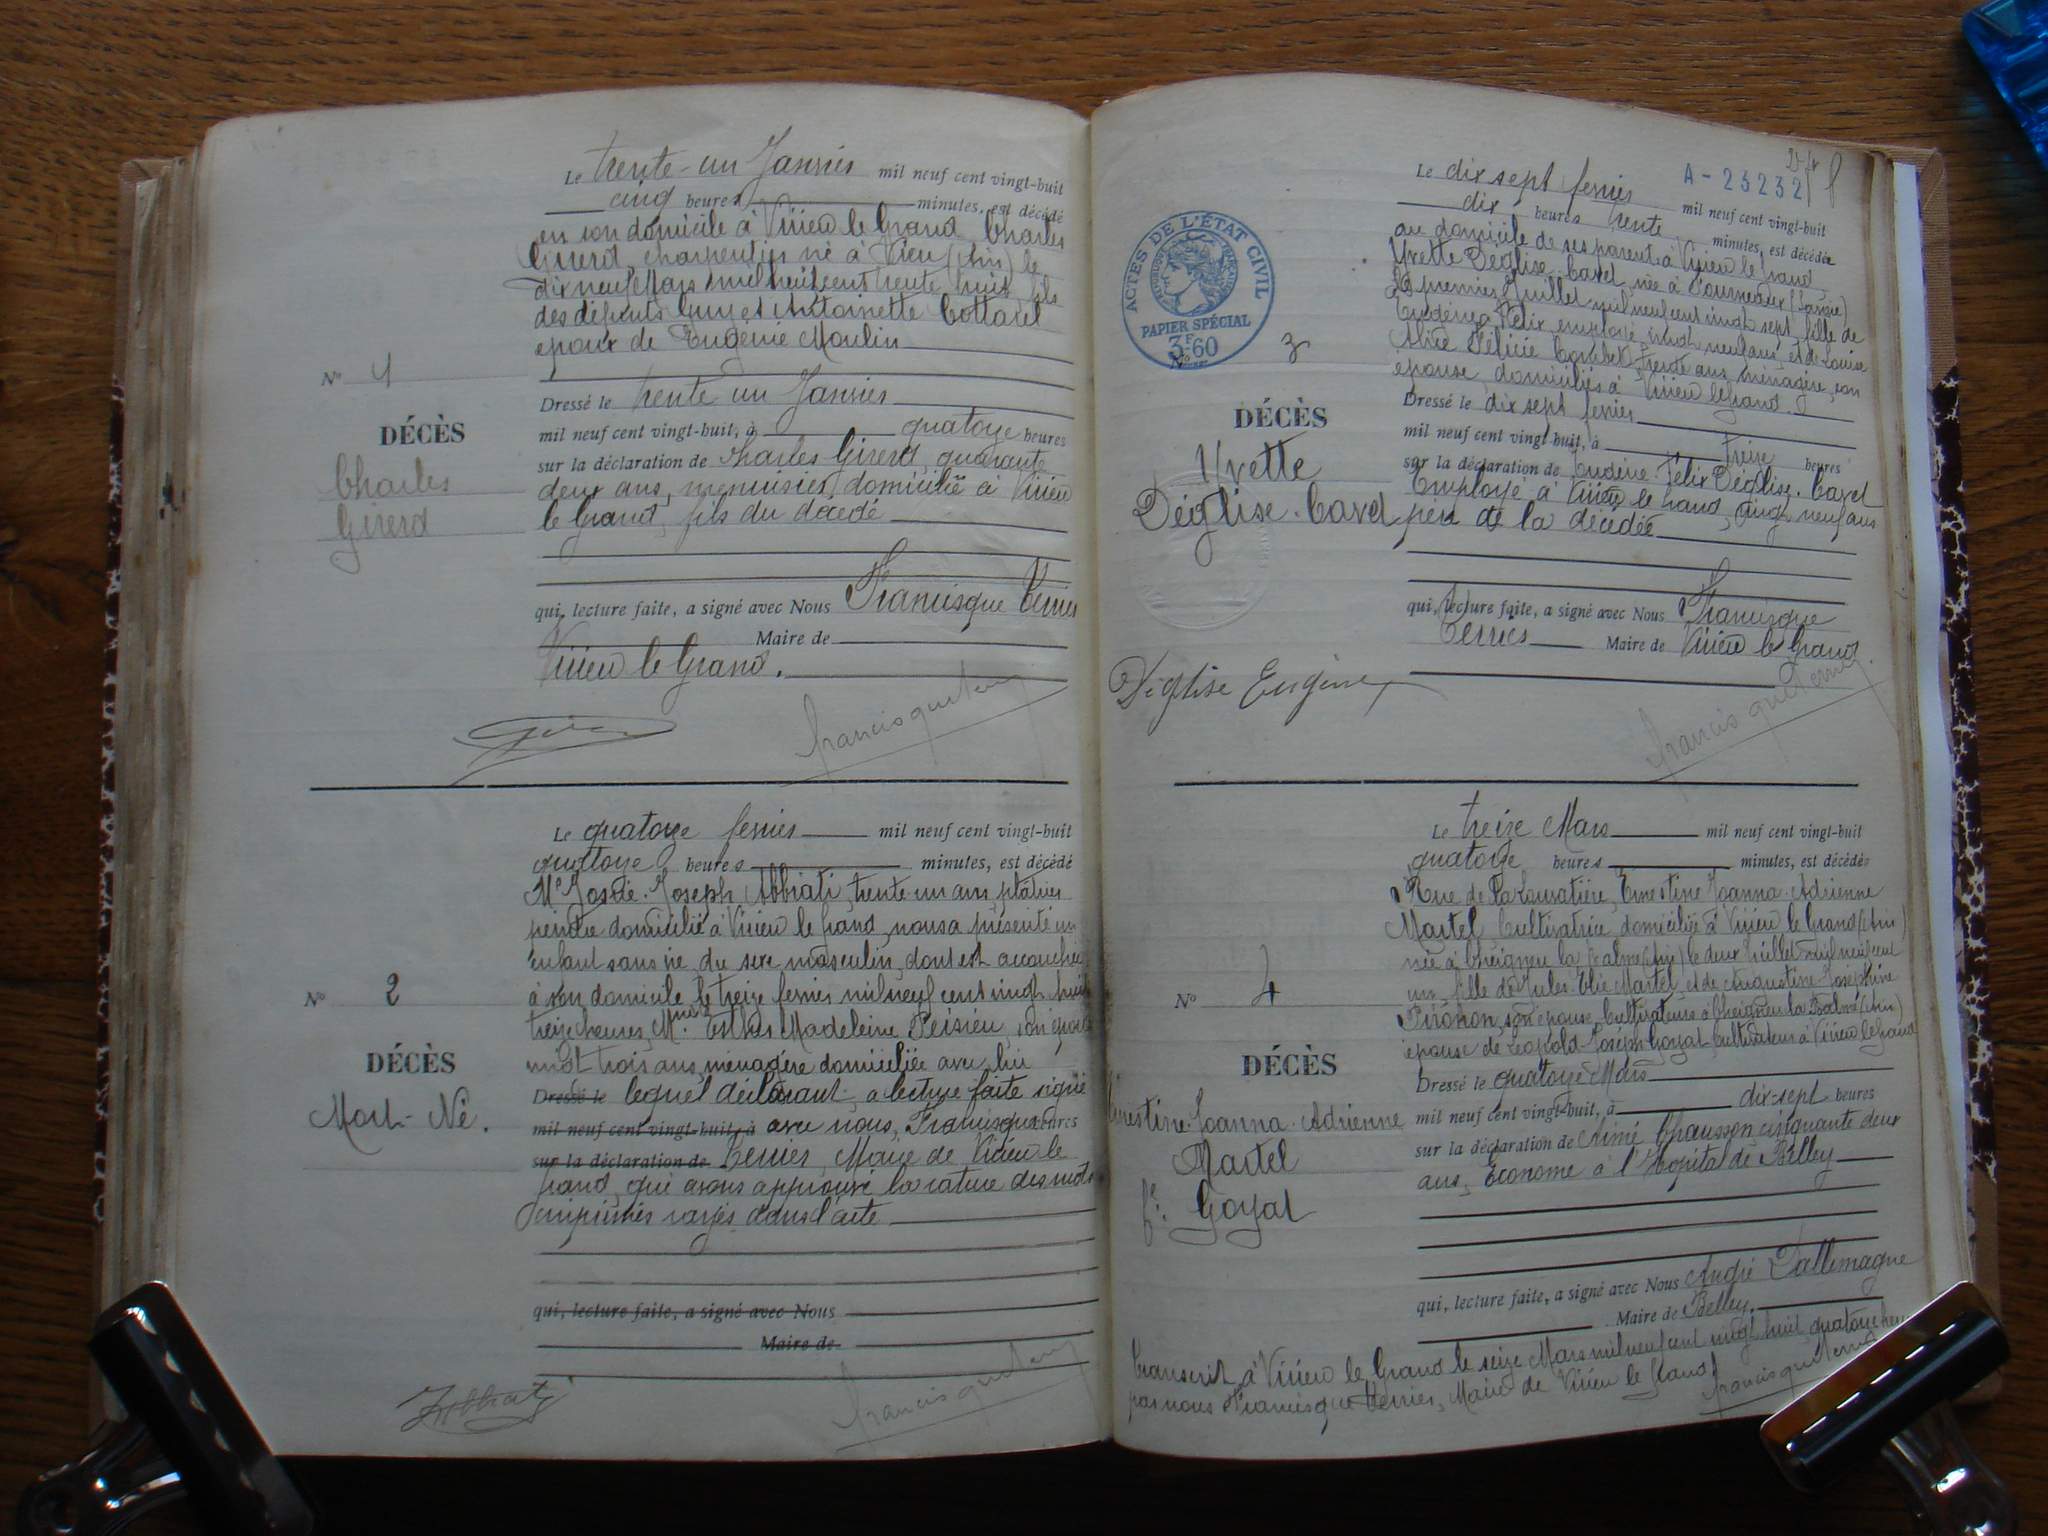 Le trente-un Janvier mil neuf cent vingt-huit
cinq heures minutes, est décédé
en son domicile à Virieu le Grand Charles
Girerd, charpentier né à Vieu (Ain) le
dix neuf Mars mil huit cent trente huit, fils
des défunts Guy et Antoinette Cottarel
époux de Eugénie Moulin
N° 1
DÉCÈS
Charles
Girerd
Dressé le trente un Janvier
mil neuf cent vingt-huit, à quatorze heures
sur la déclaration de Charles Girerd, quarante
deux ans, menuisier, domicilié à Virieu
le Grand, fils du décédé
qui, lecture faite, a signé avec Nous Francisque Terrier
Maire de
Virieu le Grand.
francisque terrier
Le quatorze fevrier mil neuf cent vingt-huit
quatorze heures minutes, est décédé
Mr Josué-Joseph Abbiati, trente un ans, plâtrier
peintre domicilié à Virieu le Grand, nous a présenté un
enfant sans vie, du sexe masculin, dont est accouchée
à son domicile le treize fevrier mil neuf cent vingt huit
treize heures, Mme Esther Madeleine Peisieu, son épouse
vingt trois ans, ménagère domiciliée avec lui
N° 2
DÉCÈS
Mort-Né.
Dressé le lequel déclarant, a lecture faite signé
mil neuf cent vingt-huit, à avec nous, Francisque heures
sur la déclaration de Terrier, Maire de Virieu le
Grand, qui avons approuvé la rature des mots
imprimés rayés dans l'acte
qui, lecture faite, a signé avec Nous
Maire de
Abbiati
francisque terrier
A-25232
Le dix sept fevrier mil neuf cent vingt-huit
dix heures trente minutes, est décédée
au domicile de ses parents à Virieu le Grand
Yvette Déglise-Cavel née à Fourneaux (Savoie)
le premier Juillet mil neuf cent vingt sept, fille de
Eugène Félix, employé, vingt neuf ans, et de Louise
Alice Félicie Combet, trente ans, ménagère, son
épouse, domiciliés à Virieu le Grand.
ACTES DE L'ÉTAT CIVIL
PAPIER SPÉCIAL
3F60
N° 3
DÉCÈS
Yvette
Déglise-Cavel
Dressé le dix sept fevrier
mil neuf cent vingt-huit, à treize heures
sur la déclaration de Eugène-Félix Déglise-Cavel
Employé à Virieu le Grand, vingt neuf ans
père de la décédée
qui, lecture faite, a signé avec Nous Francisque
Terrier Maire de Virieu le Grand
Déglise Eugène
francisque terrier
Le treize Mars mil neuf cent vingt-huit
quatorze heures minutes, est décédée
Rue de , Ernestine Joanna-Adrienne
Martel Cultivatrice, domiciliée à Virieu le Grand (Ain)
née à Cheignieu la Balme (Ain) le deux Juillet mil neuf cent
un, fille de Jules-Elie Martel, et de Augustine-Joséphine
Pironon, son épouse, Cultivateurs à Cheignieu la Balme (Ain)
épouse de Léopold-Joseph Goyat, Cultivateur à Virieu le Grand
N° 4
DÉCÈS
Ernestine-Joanna-Adrienne
Martel
fe: Goyat
Dressé le quatorze Mars
mil neuf cent vingt-huit, à dix-sept heures
sur la déclaration de Aimé Chausson, cinquante deux
ans, Économe à l'Hopital de Belley
qui, lecture faite, a signé avec Nous André Dallemagne
Maire de Belley.
Transcrit à Virieu le Grand le seize Mars mil neuf cent vingt huit, quatorze heures
par nous Francisque Terrier, Maire de Virieu le Grand
francisque terrier